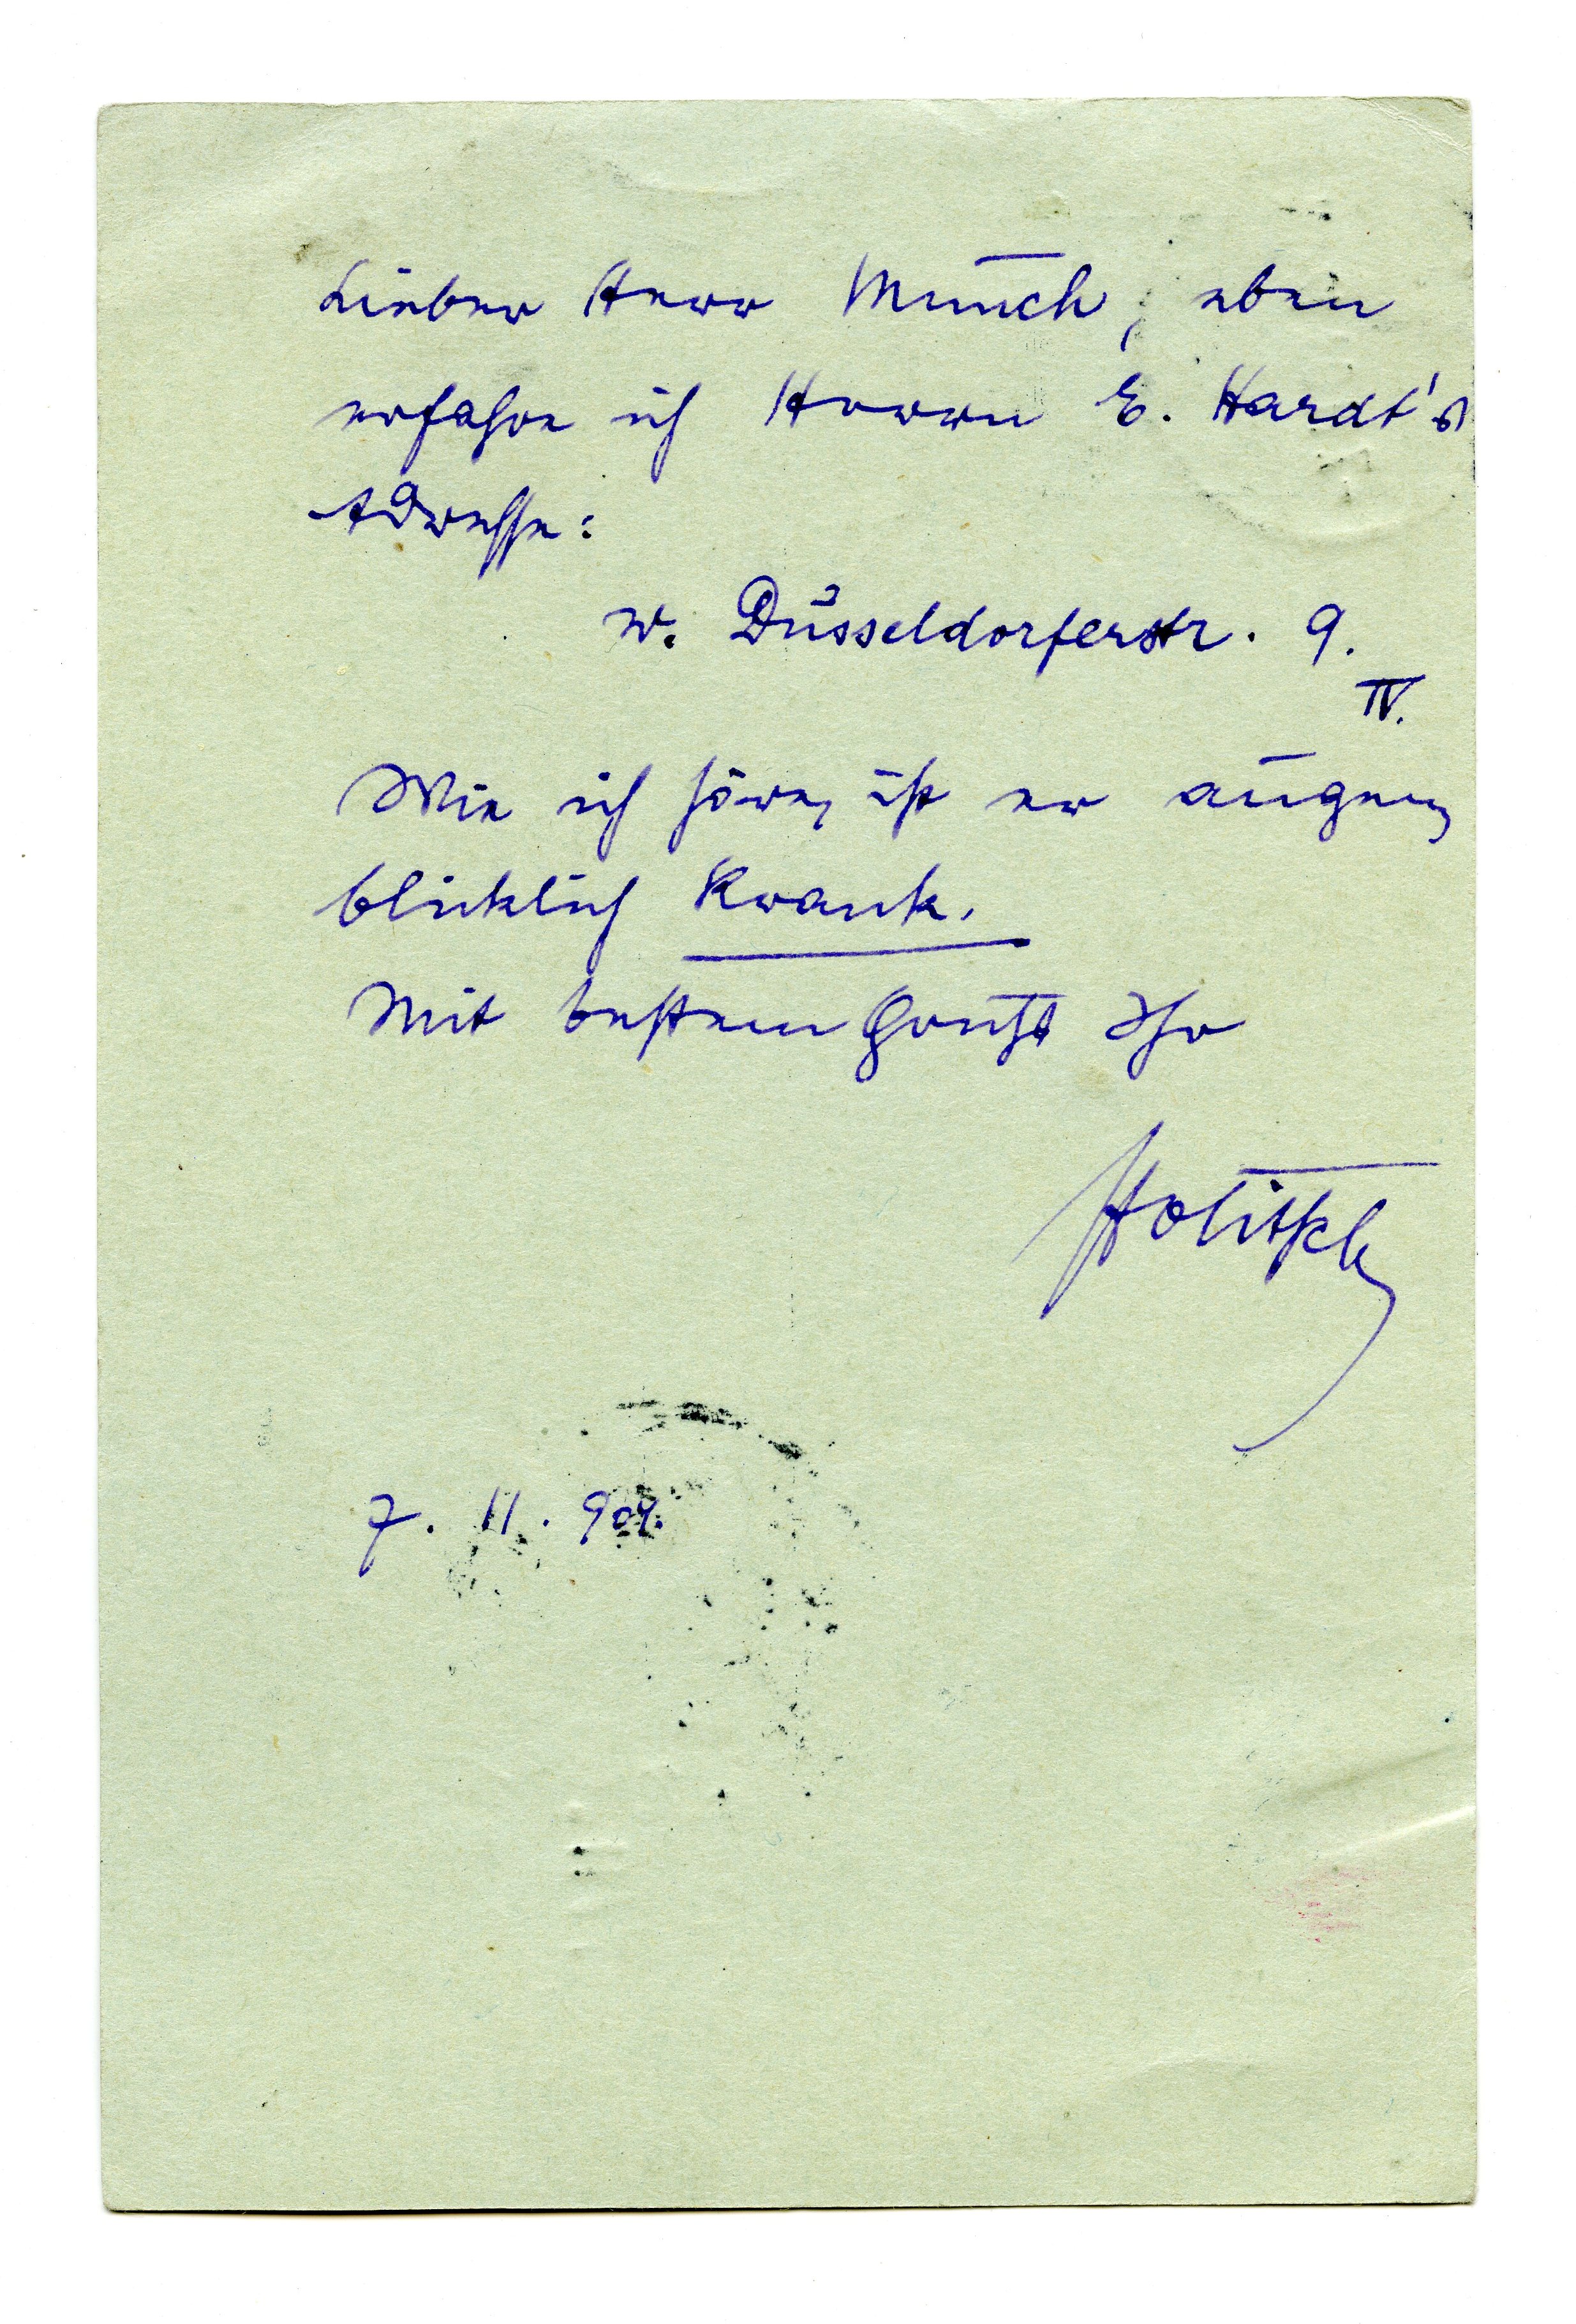 Lieber Herr Munch, eben
erfahre ich Herrn E. Hardt's
Adresse:
W. Düsseldorferstr. 9.
IV.
Wie ich höre, ist er augen-
blicklich krank.
Mit bestem Gruß Ihr
Holitsch
7. 11. 904.